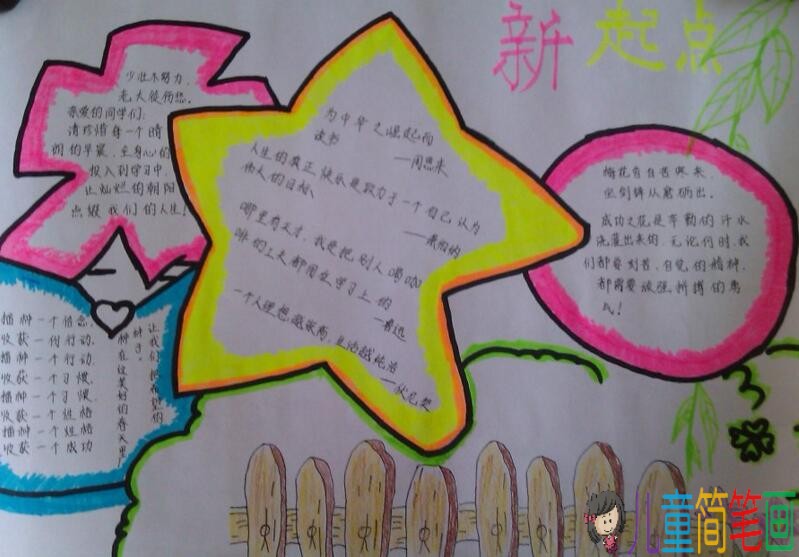 新起点
少壮不努力,
老大徒伤悲。
亲爱的同学们:
请珍惜每一个晴
朗的早晨,全身心的
投入到学习中,
让灿烂的朝阳
点缀我们的人生!
为中华之崛起而
读书
——周恩来
人生的真正快乐是致力于一个自己认为
伟人的目标、
——萧伯纳
哪里有天才,我是把别人喝咖
啡的工夫都用在学习上的
——鲁迅
一个人理想越崇高,生活越纯洁
——伏尼契
梅花香自苦寒来,
宝剑锋从磨砺出。
成功之花是辛勤的汗水
浇灌出来的,无论何时,我
们都要刻苦、自觉的精神,
都需要顽强拼搏的勇
气!
播种一个信念,
收获一份行动,
播种一个行动,
收获一个习惯,
播种一个习惯,
收获一个性格
播种一个性格
收获一个成功
让我们把希望的
种子,
种在这美好的春天里
儿童简笔画